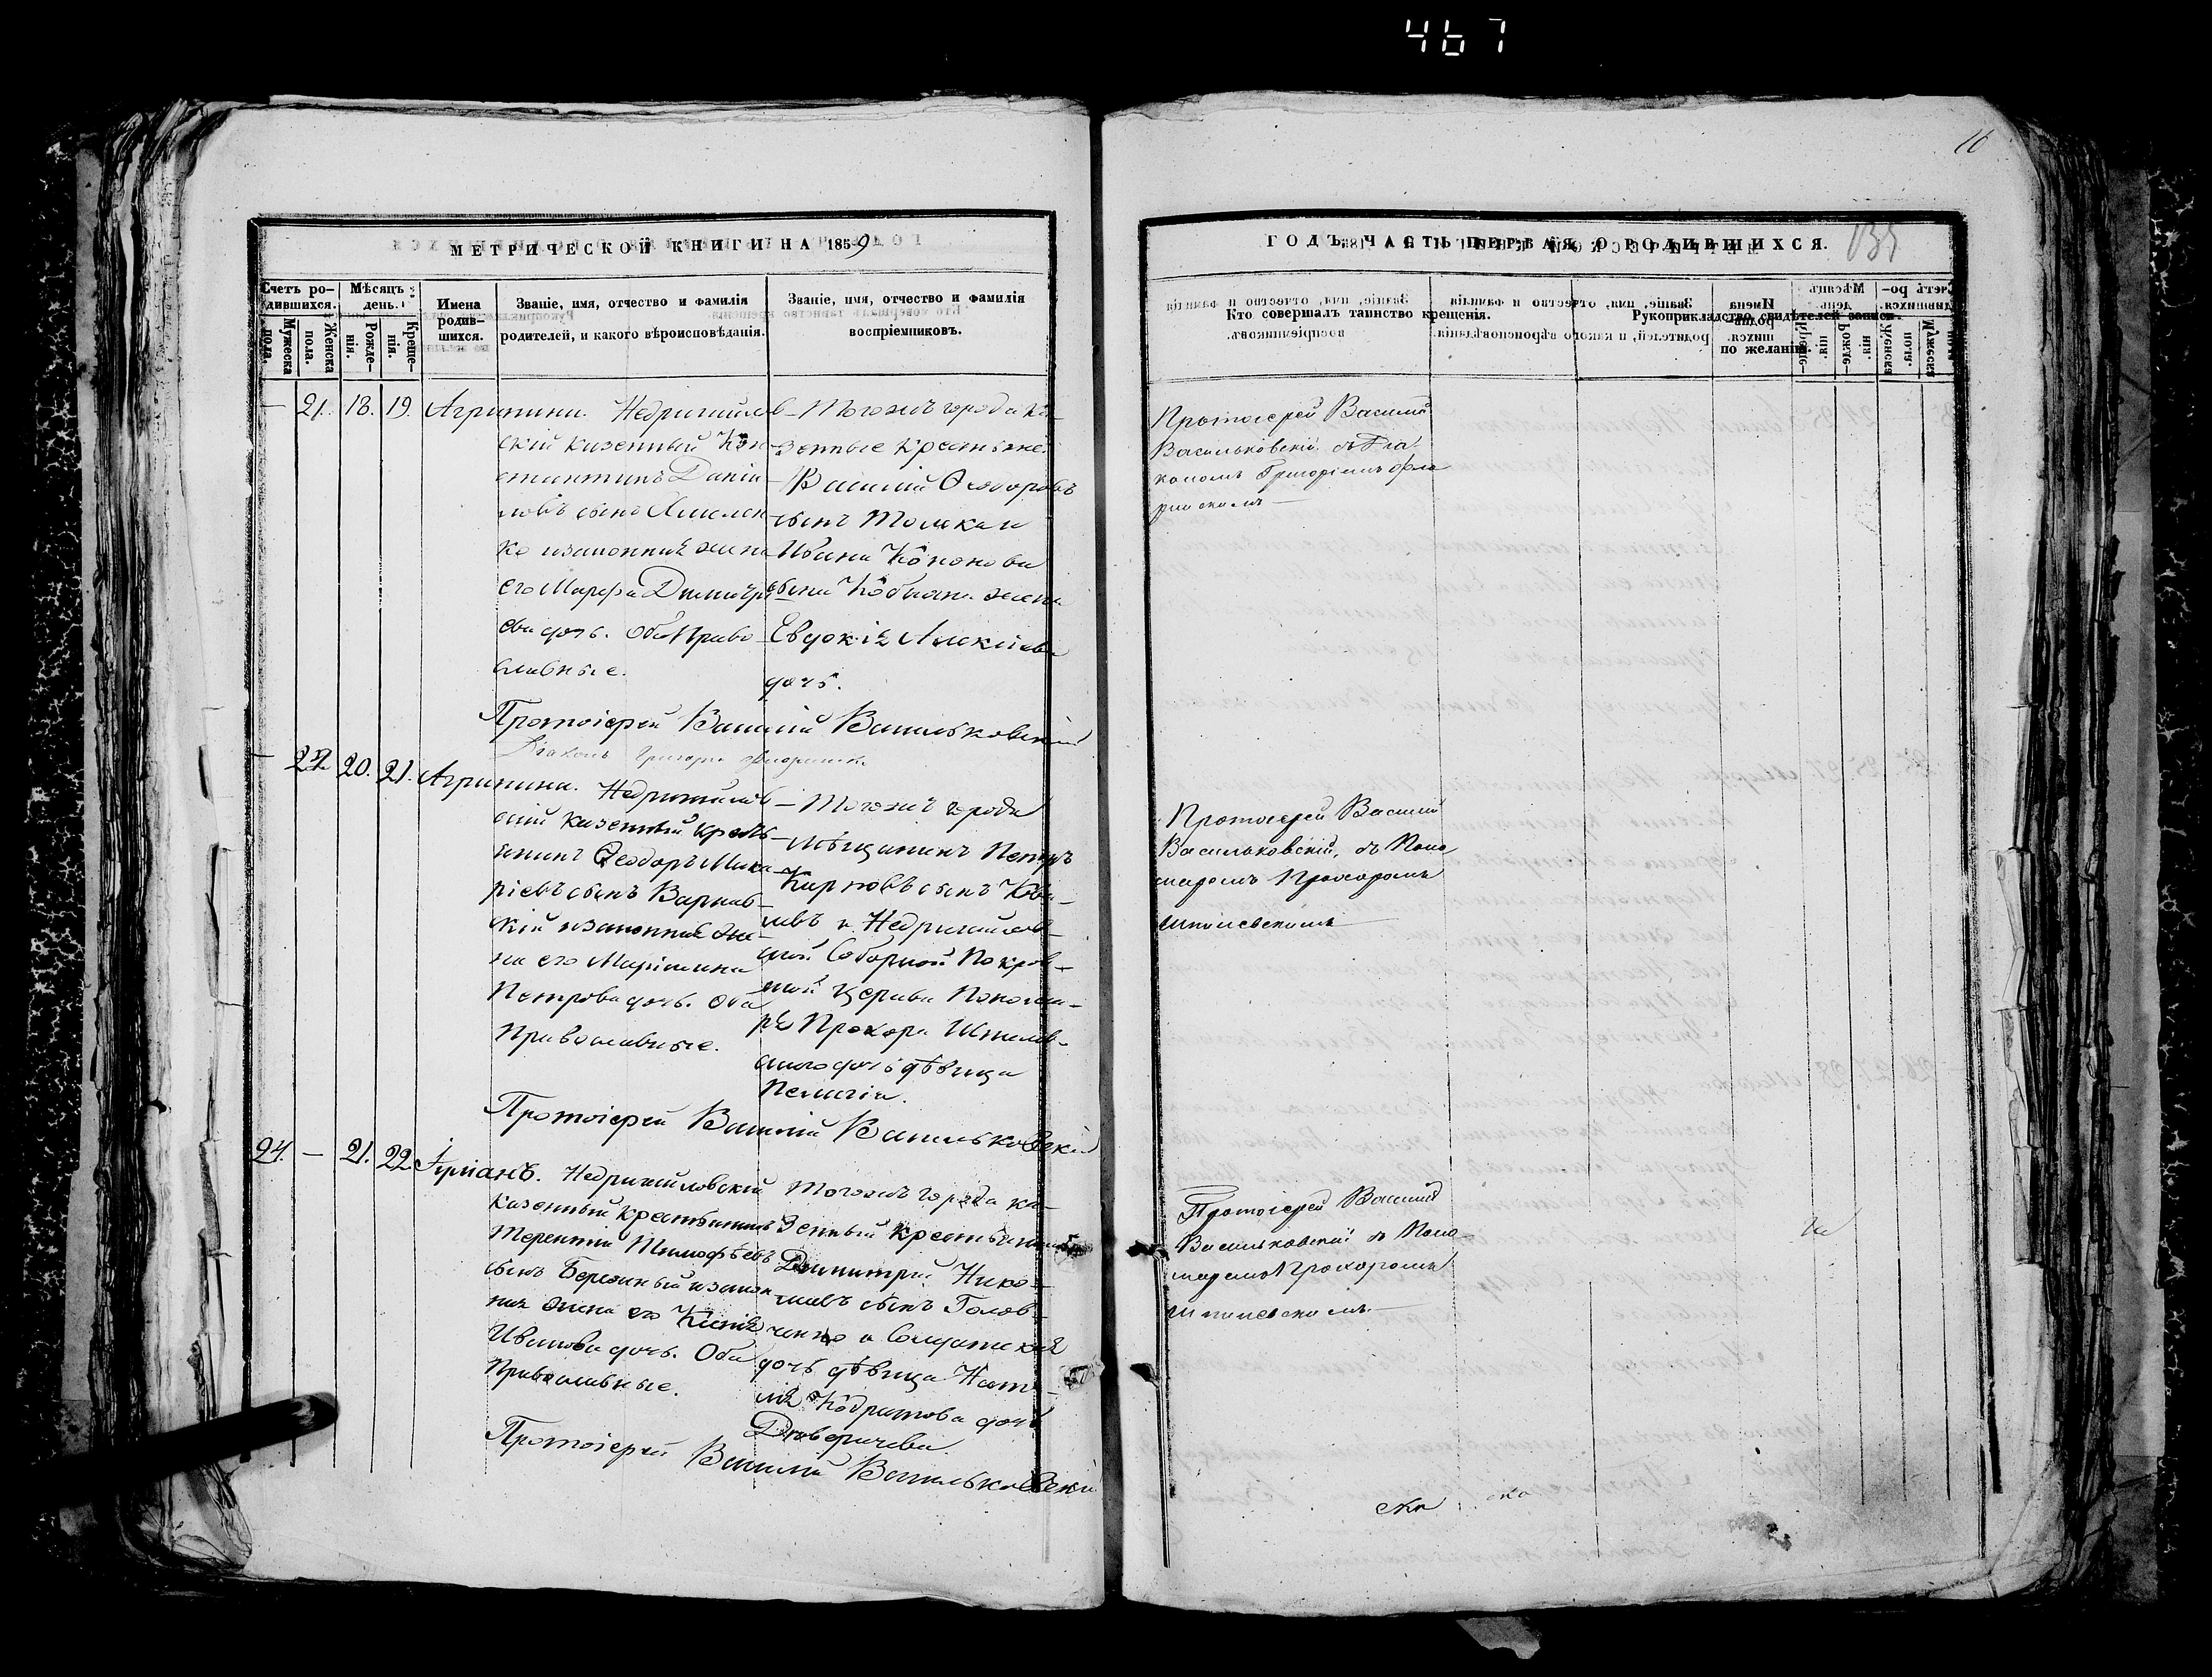 467
16
МЕТРИЧЕСКОЙ КНИГИ НА 1859
Счетъ ро-
дившихся.
Мужеска
пола.
Женска
пола.
Мѣсяцъ и
день.
Рожде-
нія.
Креще-
нія.
Имена
родив-
шихся.
Званіе, имя, отчество и фамилія
родителей, и какого вѣроисповѣданія.
Званіе, имя, отчество и фамилія
воспріемниковъ.
— 21. 18. 19. Агрипина.
Недригайлов-
скій казенный Кон-
стантинъ Даніи-
ловъ сынъ
ко изаконная жена
его Марфа Димитрі
ева дочь. Оба Право-
славные.
Тогожъ города ка-
зенные крестьяне:
Василій Ѳеодоровъ
сынъ
Ивана Кононова
сына жена
Евдокія Алексіева
дочь.
Протоіерей Василій Васильковскій
Діаконъ Григорій
— 22. 20. 21. Агрипина.
Недригайлов-
скій казенный кресть-
янинъ Ѳеодоръ Мака-
ріевъ сынъ Варнав-
скій изаконная же-
на его Маріамна
Петрова дочь. Оба
Православные.
Тогожъ города
мѣщанинъ Петръ
Карповъ сынъ
и Недригайлов-
ской Соборной Покров-
ской Церкви Понома-
ря Прохора Шпилев-
скаго дочь дѣвица
Пелагія.
Протоіерей Василій Васильковскій
24. — 21. 22. Іуліанъ.
Недригайловскій
казенный крестьянинъ
Терентій Тимофѣевъ
сынъ Бережный изакон-
ная жена его Ксенія
Иванова дочь. Оба
Православные.
Тогожъ города ка-
зенный крестьянинъ
Димитрій Нико-
лаевъ сынъ Голов-
ченко и Солдатская
дочь дѣвица Ната-
лія Кодратова дочь
Протоіерей Василій Васильковскій
ГОДЪ, ЧАСТЬ ПЕРВАЯ, О РОДИВШИХСЯ.
Кто совершалъ таинство крещенія.
Рукоприкладство свидѣтелей записи
по желанію.
Протоіерей Василій
Васильковскій съ Діа
кономъ Григоріемъ Фло
ринскимъ —
Протоіерей Василій
Васильковскій, съ Поно
маремъ Прохоромъ
Шпилевскимъ —
Протоіерей Василій
Васильковскій съ Поно-
маремъ Прохоромъ
Шпилевскимъ —